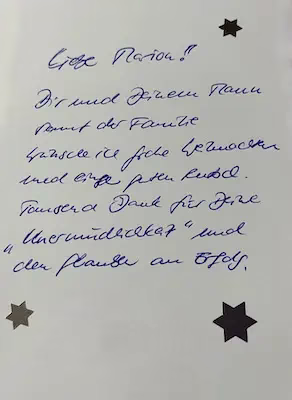 Liebe Marion!!
Dir und Deinem Mann
samt der Familie
wünsche ich frohe Weihnachten
und einen guten Rutsch.
Tausend Dank für Deine
„Unermüdlichkeit" und
den Glauben an Erfolg.